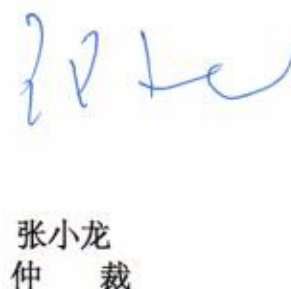 张小龙
仲 裁